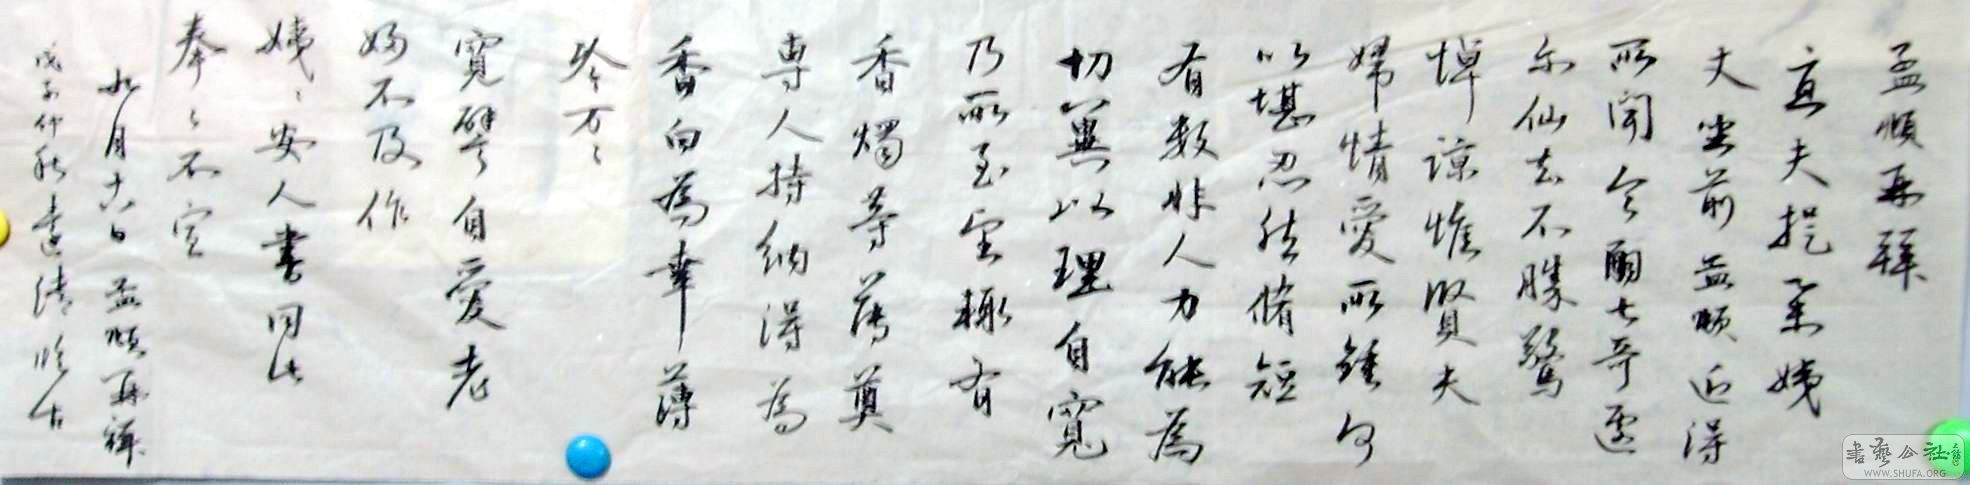 孟頫再拜
宜夫提举姨
丈坐前孟頫近得
所闻令爾七哥遽
尔仙去不勝驚
悼諒惟賢夫
婦情愛所鍾何
以堪忍然脩短
有数非人力能為
切冀以理自寬
乃所至望輒有
香燭等薄奠
専人持納得為
香白為幸薄
吟万〻
寬譬自愛老
婦不及作
姨〻安人書同此
奉〻不宣
如月十六日孟頫再拜
戊子仲秋清临古
書藝公社
WWW.SHUFA.ORG